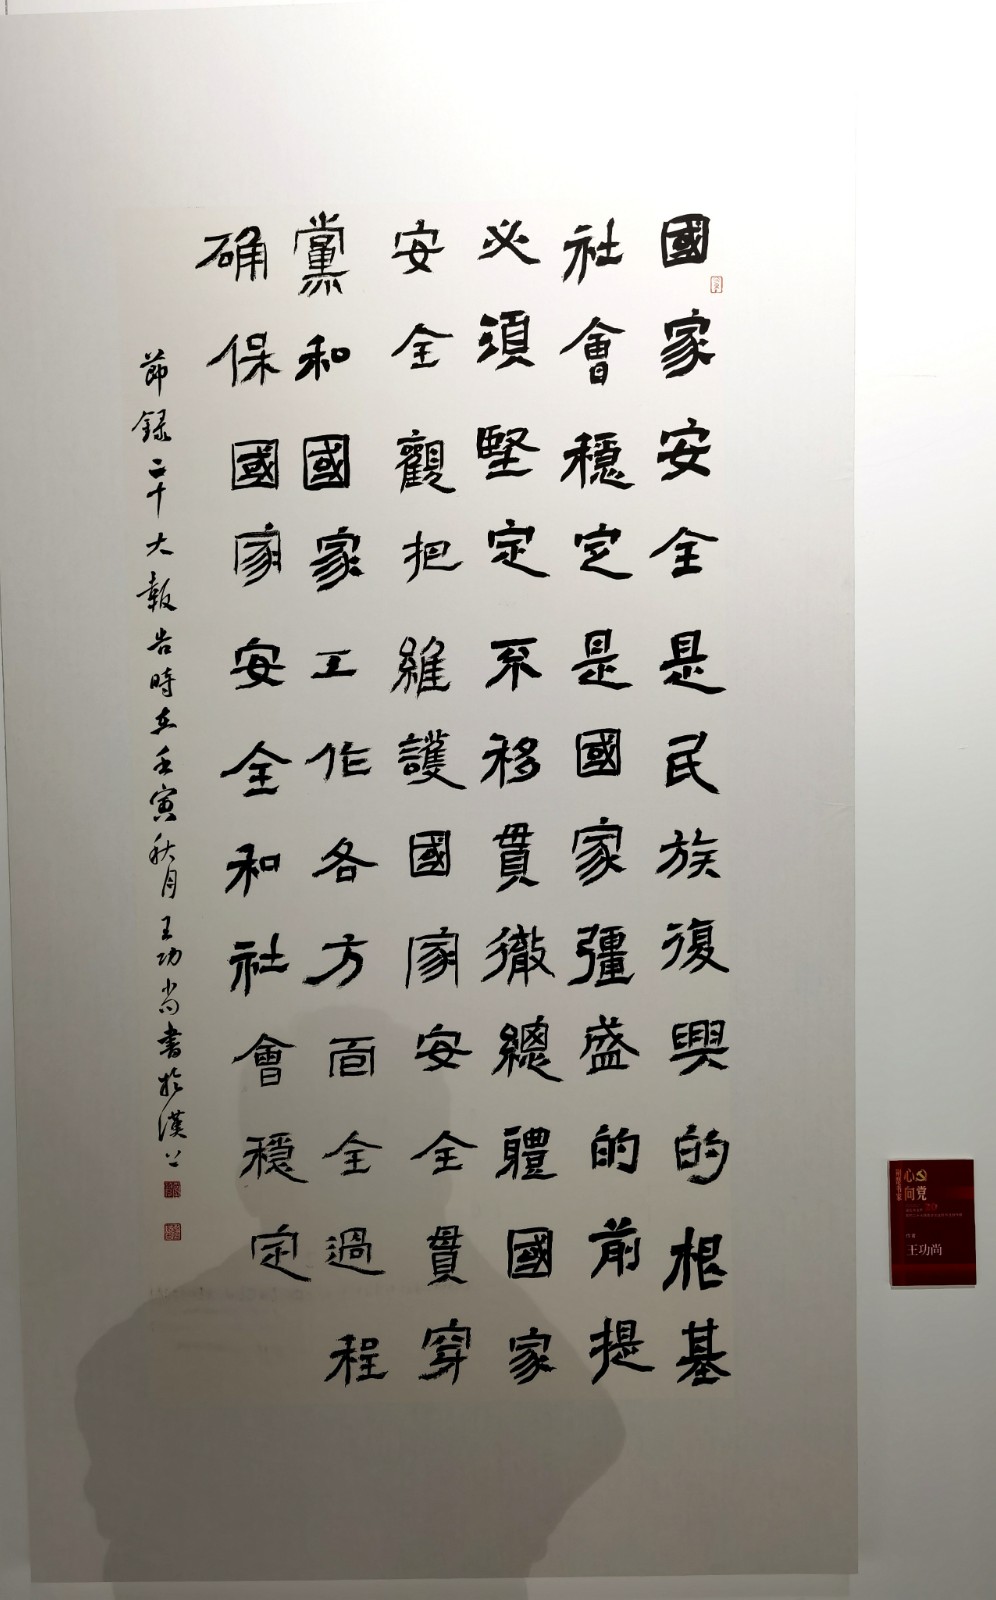 國家安全是民族復興的根基
社會穩定是國家彊盛的前提
必須堅定不移貫徹總體國家
安全觀把維護國家安全貫穿
黨和國家工作各方面全過程
確保國家安全和社會穩定
節録二十大報告時在壬寅秋月王功尚書於漢上
心向党
王功尚